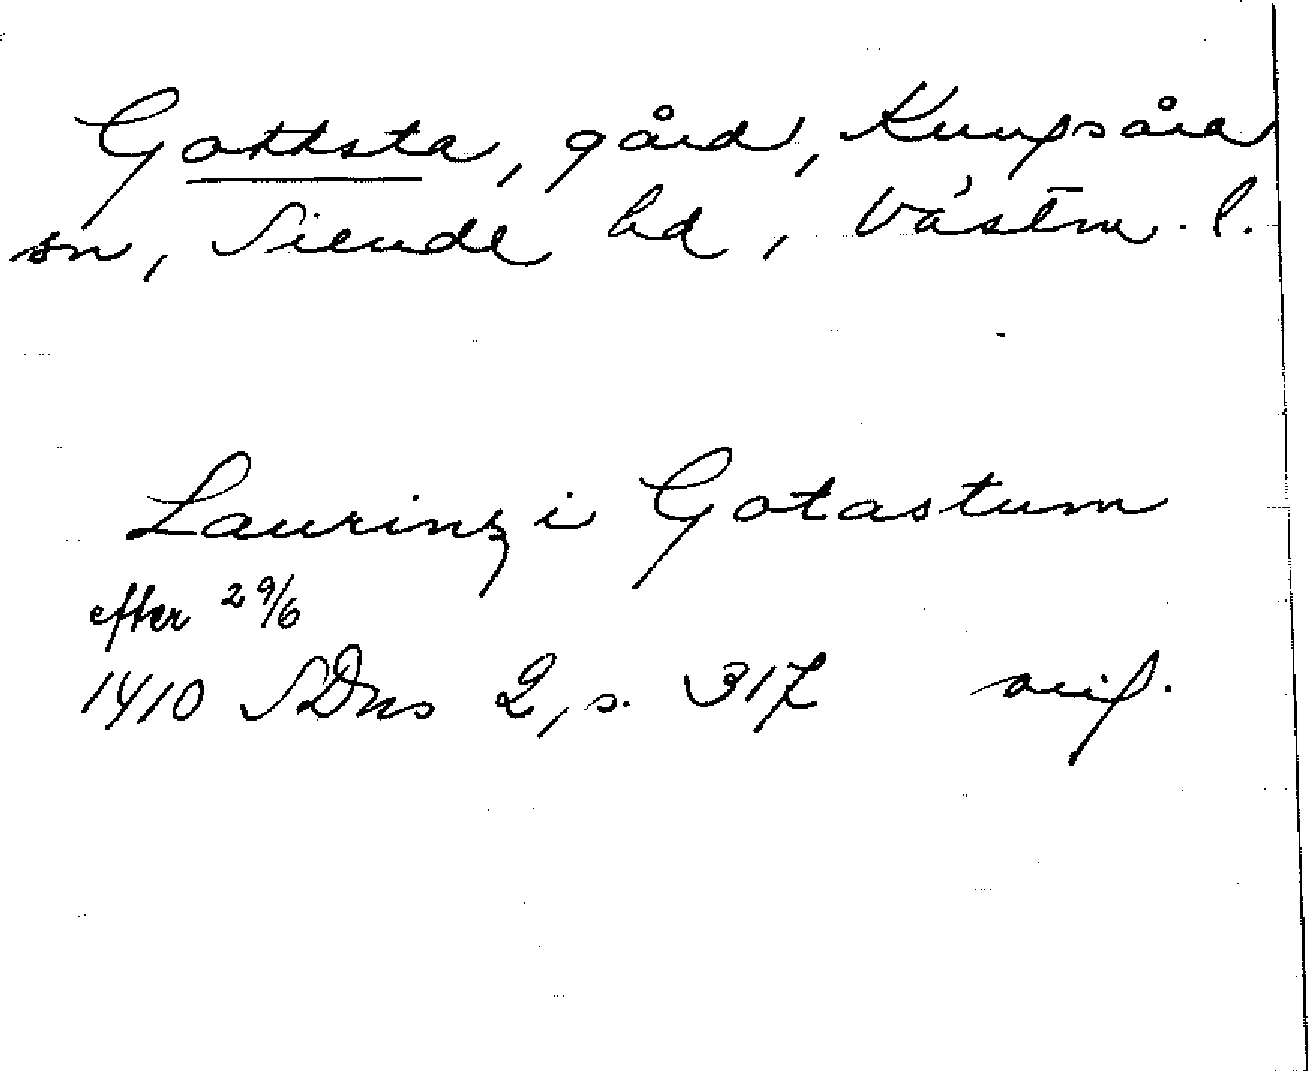 Gottsta, gård, Kungsåra
sn, Siende hd, Västm. l.
Laurinz i Gotastum
efter 29/6
1410 SDns 2, s. 317 orig.